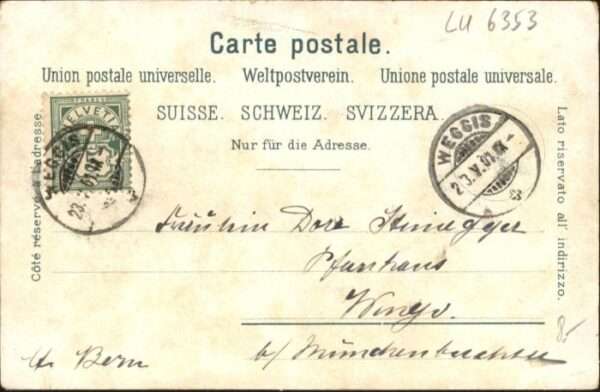 LU 6353
Carte postale.
Union postale universelle. Weltpostverein. Unione postale universale.
SUISSE. SCHWEIZ. SVIZZERA.
Nur für die Adresse.
Côté réservé à l'adresse.
Lato riservato all' indirizzo.
HELVETIA
WEGGIS
23.V.01
WEGGIS
23.V.01
Fräulein Dora Steinegger
Pfarrhaus
b/ Münchenbuchsee
Bern
8.-